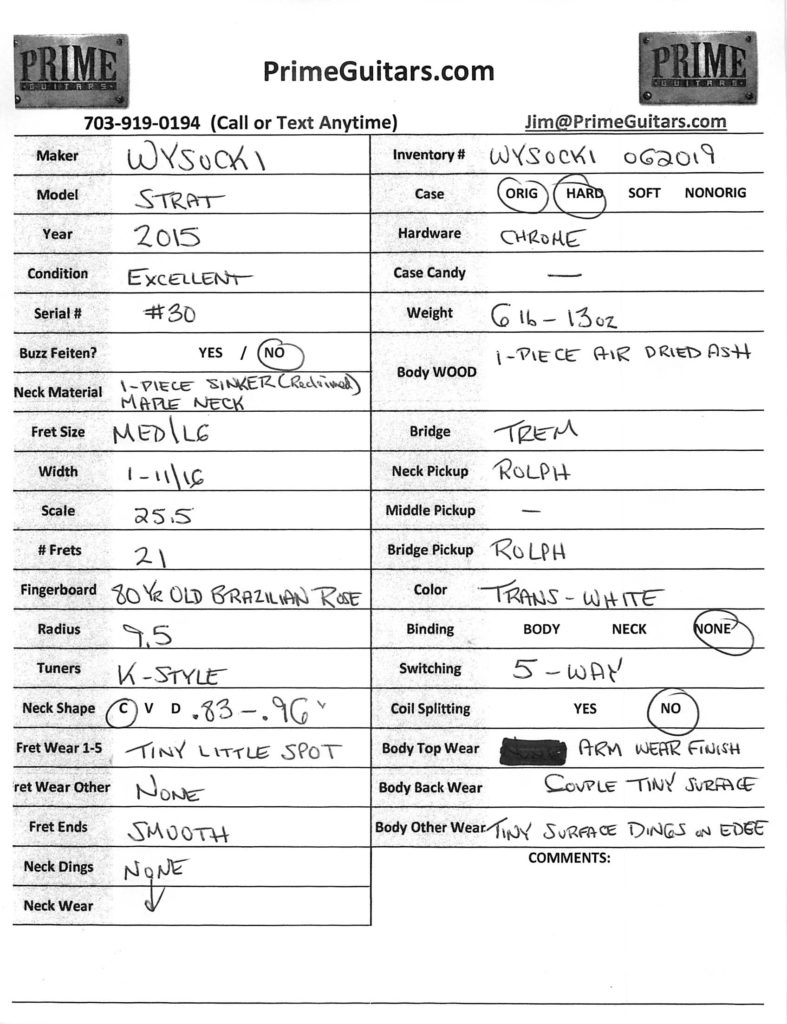 PRIME
GUITARS
PrimeGuitars.com
PRIME
GUITARS
703-919-0194 (Call or Text Anytime)
Jim@PrimeGuitars.com
Maker WYSOCKI
Inventory # WYSOCKI 062019
Model STRAT
Case ORIG HARD SOFT NONORIG
Year 2015
Hardware CHROME
Condition EXCELLENT
Case Candy —
Serial # #30
Weight 6 lb - 13 oz
Buzz Feiten? YES / NO
Body WOOD 1-PIECE AIR DRIED ASH
Neck Material 1-PIECE SINKER (Reclaimed)
MAPLE NECK
Fret Size MED/LG
Bridge TREM
Width 1-11/16
Neck Pickup ROLPH
Scale 25.5
Middle Pickup —
# Frets 21
Bridge Pickup ROLPH
Fingerboard 80 YR OLD BRAZILIAN ROSE
Color TRANS-WHITE
Radius 9.5
Binding BODY NECK NONE
Tuners K-STYLE
Switching 5-WAY
Neck Shape C V D .83-.96"
Coil Splitting YES NO
Fret Wear 1-5 TINY LITTLE SPOT
Body Top Wear ARM WEAR FINISH
ret Wear Other NONE
Body Back Wear COUPLE TINY SURFACE
Fret Ends SMOOTH
Body Other Wear TINY SURFACE DINGS ON EDGE
Neck Dings NONE
COMMENTS:
Neck Wear